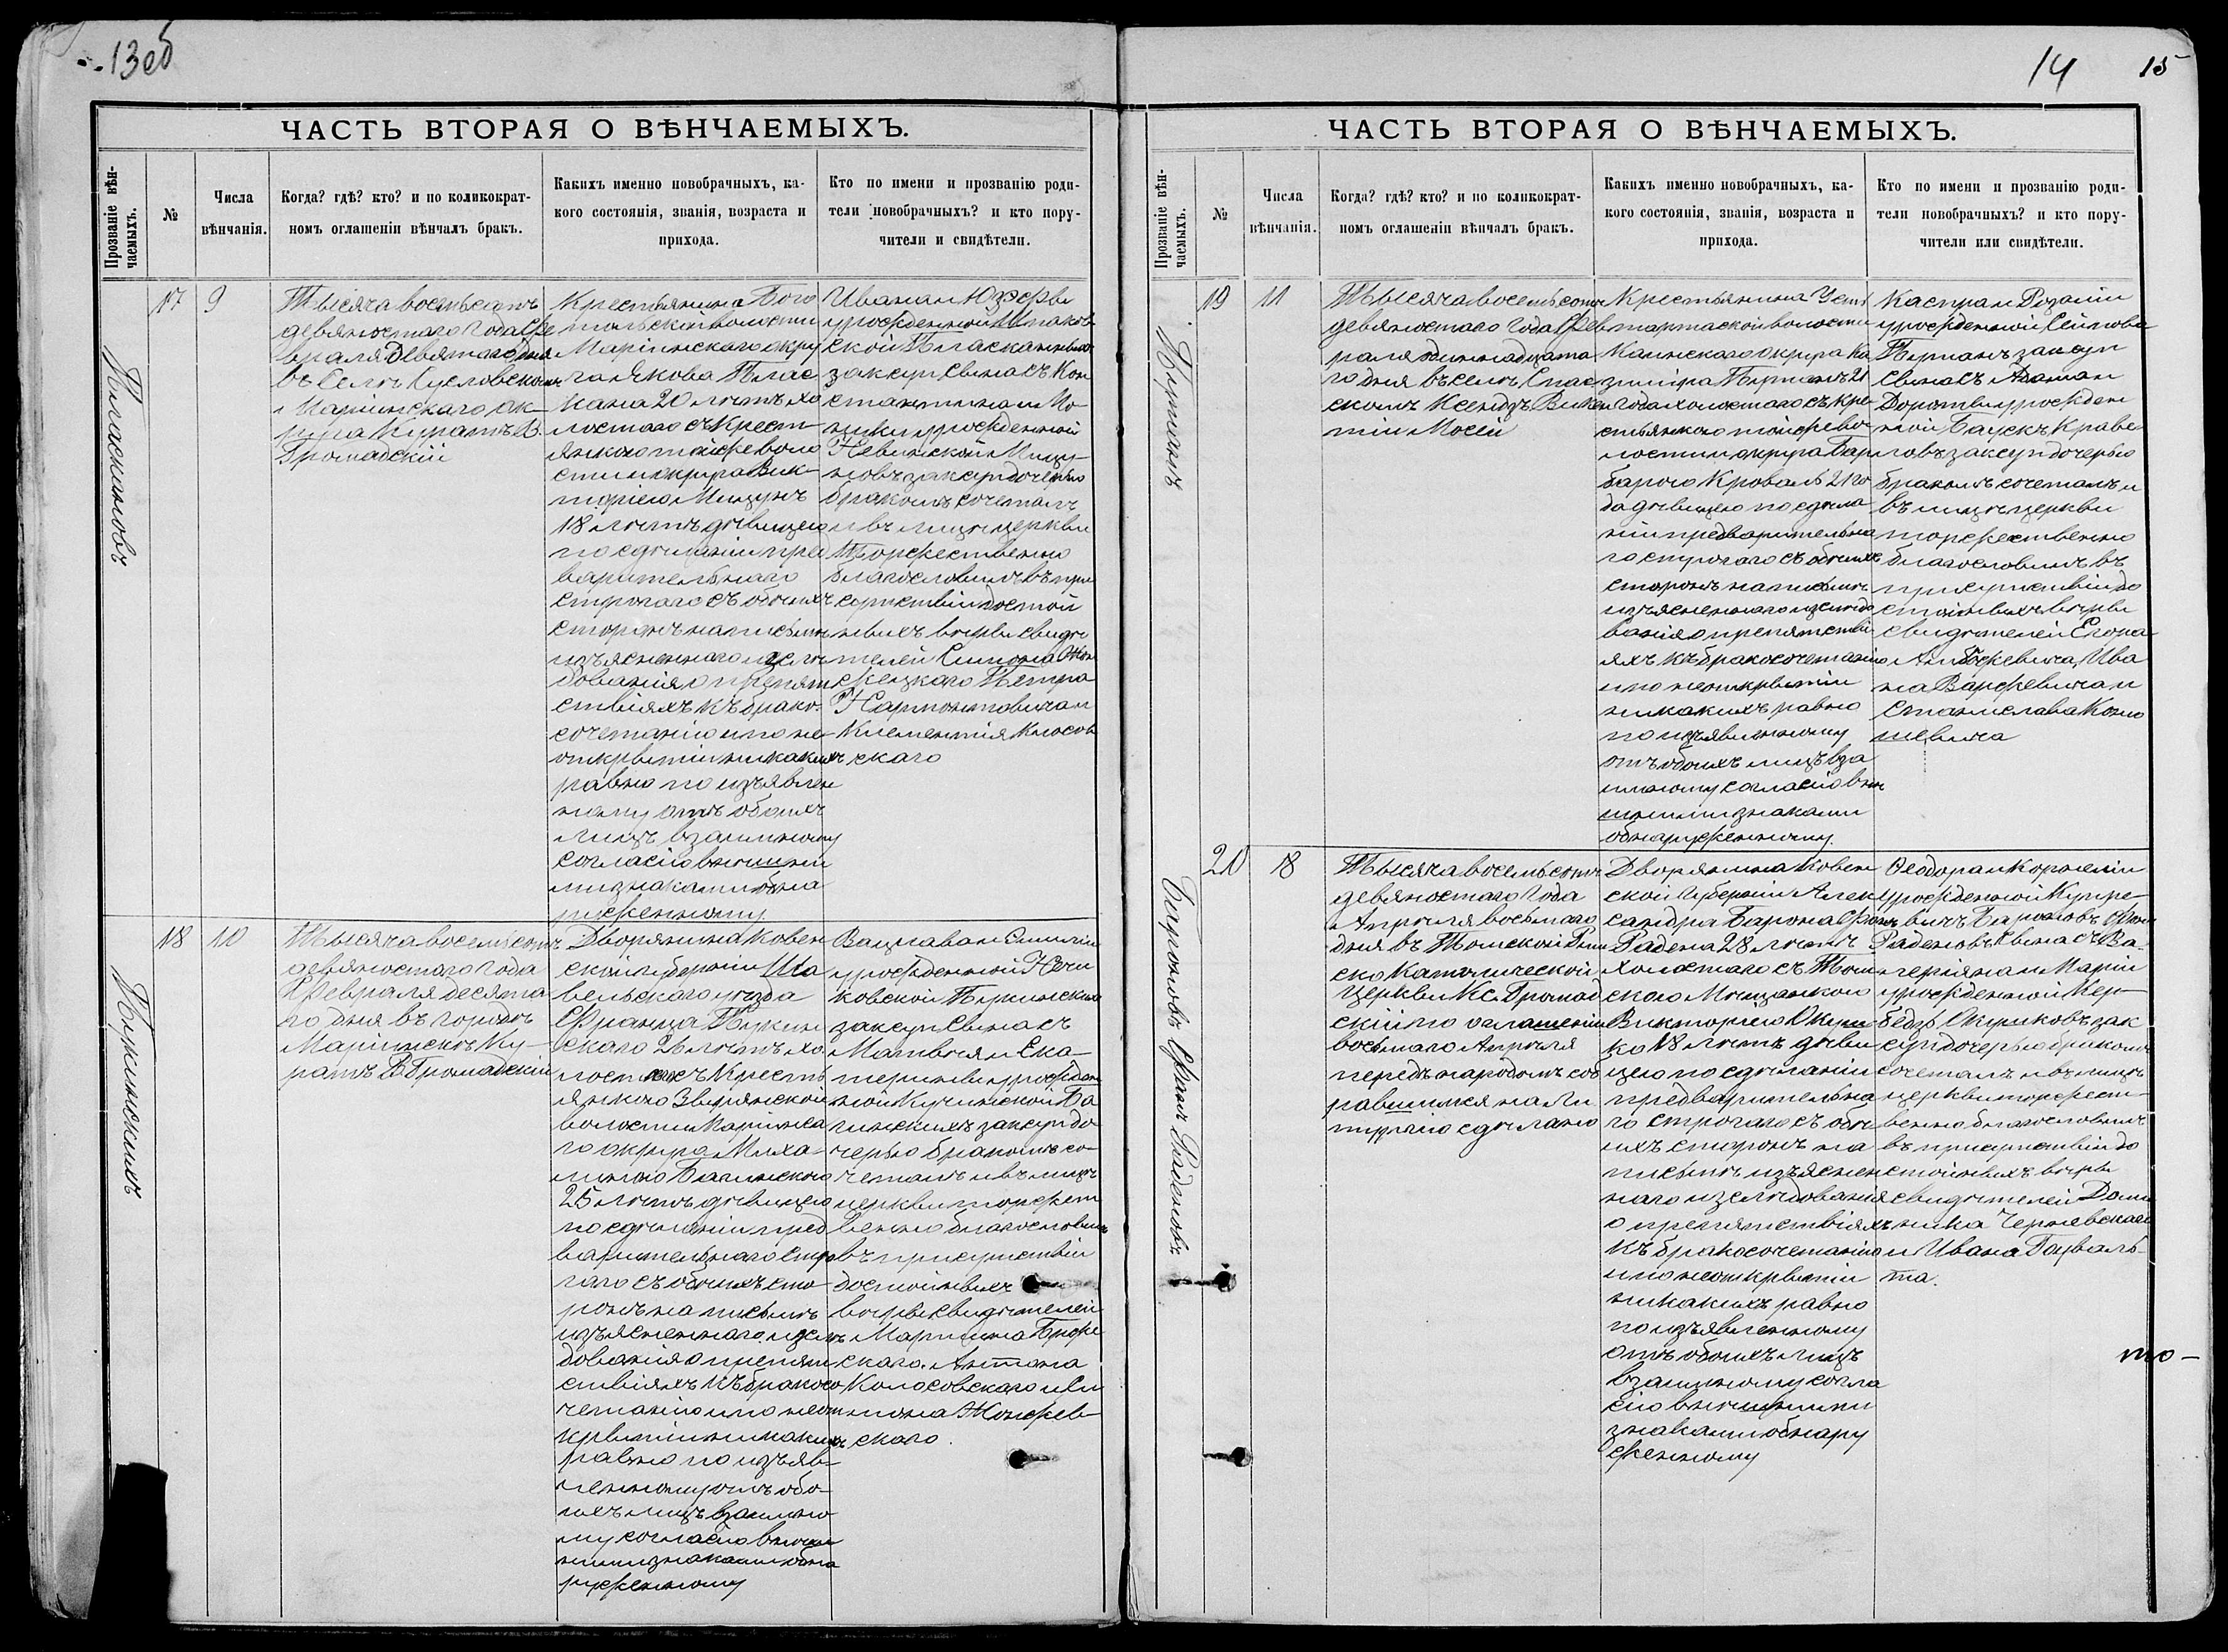 13об
ЧАСТЬ ВТОРАЯ О ВѢНЧАЕМЫХЪ.
Прозваніе вѣн-
чаемыхъ.
№
Числа
вѣнчанія.
Когда? гдѣ? кто? и по коликократ-
номъ оглашеніи вѣнчалъ бракъ.
Какихъ именно новобрачныхъ, ка-
кого состоянія, званія, возраста и
прихода.
Кто по имени и прозванію роди-
тели новобрачныхъ? и кто пору-
чители и свидѣтели.
Пласкановъ
17
9
Тысяча восемьсотъ
девяностаго года Фе
враля девятаго дня
въ селѣ Кусловскомъ
Маріинскаго ок-
руга Куратъ В.
Громадскій
Крестьянина Бого
тольской волости
Маріинскаго окру
га Якова Плас
кана 20 лѣтъ хо
лостаго съ Крест
янкою той же воло
сти и округа Вик-
торіею Мицунъ
18 лѣтъ дѣвицею
по сдѣланіи пред
варительнаго
строгаго съ обоихъ
сторонъ на письмѣ
изъясненнаго изслѣ
дованія о препят
ствіяхъ къ брако-
сочетанію и по не-
открытіи никакихъ
равно по изъявлен
ному отъ обоихъ
лицъ взаимному
согласію внѣшни
ми знаками обна
руженному
Ивана и Юзефы
урожденной
ской Пласкановыхъ
зак. суп. сына съ Кон
стантина и Мо
ники урожденной
Невинской Мицу-
новъ зак. суп. дочерью
бракомъ сочеталъ
и въ лицѣ церкви
Торжественно
благословилъ въ при
сутствіи достой
ныхъ вѣры свидѣ
телей Симона
Петра
Нартонтовича и
Климентія Клосов
скаго
Пукинскихъ
18
10
Тысяча восемьсотъ
девяностаго года
Февраля десята
го дня въ городѣ
Маріинскѣ Ку-
ратъ В Громадскій
Дворянина Ковен
ской губерніи Ша
вельскаго уѣзда
Франца Пукин
скаго 26 лѣтъ хо
лост съ Крестъ
янкою Зырянской
волости Маріинска
го округа Миха-
линою Багинскою
25 лѣтъ дѣвицею
по сдѣланіи пред
варительнаго стро
гаго съ обоихъ сто-
ронъ на письмѣ
изъясненнаго изслѣ
дованія о препят
ствіяхъ къ бракосо
четанію и по неот
крытіи никакихъ
равно по изъяв-
ленному отъ обо-
ихъ лицъ взаимно
му согласію внѣш
ними знаками обна
руженному
Вацлава и Емиліи
урожденной Неч
ковской Пукинскихъ
зак. суп. сына съ
Матвѣя и Ека-
терины урожден
ной Кучинской Ба
гинскихъ зак. суп. до
черью бракомъ со-
четалъ и въ лицѣ
церкви торжест
венно благословилъ
въ присутствіи
достойныхъ
вѣры свидѣтелей
Мартина
скаго. Антона
Колосовскаго и Си
мона
скаго.
14
15
ЧАСТЬ ВТОРАЯ О ВѢНЧАЕМЫХЪ.
Прозваніе вѣн-
чаемыхъ.
№
Числа
вѣнчанія.
Когда? гдѣ? кто? и по коликократ-
номъ оглашеніи вѣнчалъ бракъ.
Какихъ именно новобрачныхъ, ка-
кого состоянія, званія, возраста и
прихода.
Кто по имени и прозванію роди-
тели новобрачныхъ? и кто пору-
чители или свидѣтели.
Пурманъ
19
11
Тысяча восемьсотъ
девяностаго года Фев
раля одиннадцата
го дня въ селѣ Спас
скомъ Ксендзъ Викен
тій Мосей
Крестьянина Усть
тартаской волости
Каинскаго округа Ка
зиміра Пурманъ 21
года холостаго съ кре
стьянкою той же во
лости и округа Бар
барою Кроваль 21 го
да дѣвицею по сдѣла
ніи предварительна
го строгаго съ обоихъ
сторонъ на письмѣ
изъясненнаго изслѣдо
ванія о препятстві
яхъ къ бракосочетанію
и по неоткрытіи
никакихъ равно
по изъявленному
отъ обоихъ лицъ вза
имному согласію внѣ
шними знаками
обнаруженному.
Каспра и Розаліи
урожденной Сейтовой
Пурманъ зак. суп
сына съ Адама и
Доротеи урожден
ной Баускъ Крава
ловъ зак. суп. дочерью
бракомъ сочеталъ и
въ лицѣ церкви
торжественно
благословилъ въ
присутствіи до
стойныхъ вѣры
свидѣтелей Егора
Ива
на Варжевича и
Станислава
шевича
Бароновъ Фонъ Раденовъ
20
18
Тысяча восемьсотъ
девяностаго года
Апрѣля восьмаго
дня въ Томской Рим
ско Католической
Церкви Кс. Громад
скій по оглашеніи
восьмаго Апрѣля
передъ народомъ соб
равшимся на Ли
тургію сдѣлано
Дворянина Ковен
ской губерніи Алек
сандра Барона Фонъ
Радена 28 лѣтъ
холостаго съ Том
скою Мѣщанкою
Викторіею Окуш
ко 18 лѣтъ дѣви
цею по сдѣланіи
предварительна
го строгаго съ обо
ихъ сторонъ на
письмѣ изъяснен
наго изслѣдованія
о препятствіяхъ
къ бракосочетанію
и по неоткрытіи
никакихъ равно
по изъявленному
отъ обоихъ лицъ
взаимному согла
сію внѣшними
знаками обнару
женному
Ѳеодора и Корнеліи
урожденной Купре-
вичъ Бароновъ Фонъ
Раденовъ сына съ Ва-
леріяна и Маріи
урожденной Кер-
бедзь Окушковъ зак
суп. дочерью бракомъ
сочеталъ и въ лицѣ
церкви торжест-
венно благословилъ
въ присутствіи до
стойныхъ вѣры
свидѣтелей Доми
ника Черневскаго
и Ивана Гоуваль-
та.
то-